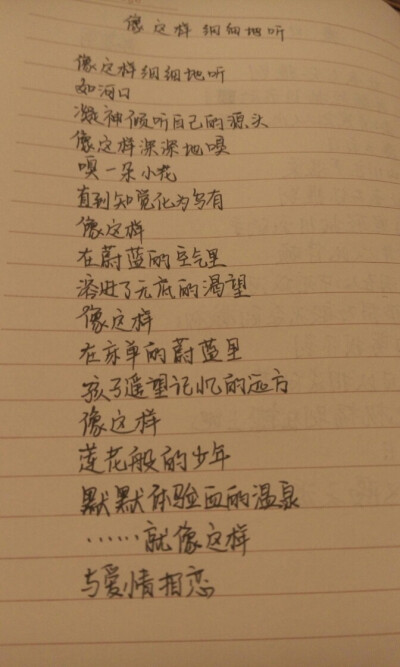 像这样细细地听
像这样细细地听
如河口
凝神倾听自己的源头
像这样深深地嗅
嗅一朵小花
直到知觉化为乌有
像这样
在蔚蓝的空气里
溶进了无底的渴望
像这样
在床单的蔚蓝里
孩子遥望记忆的远方
像这样
莲花般的少年
默默体验血的温泉
……就像这样
与爱情相恋